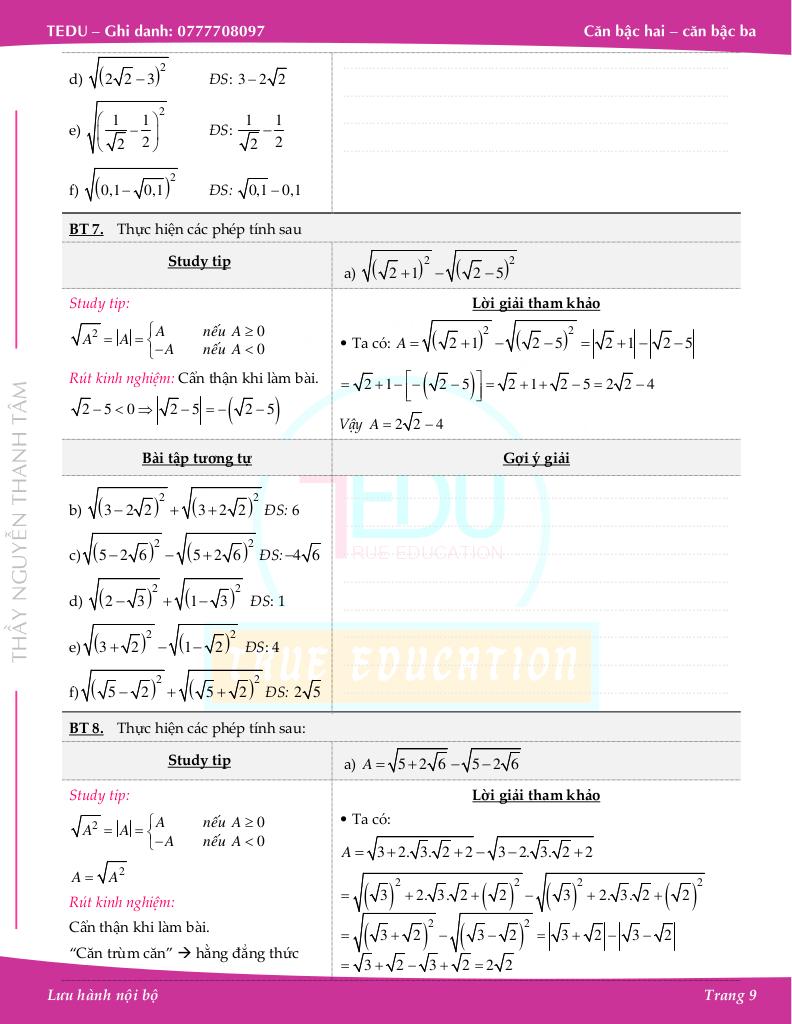 TEDU – Ghi danh: 0777708097 Căn bậc hai – căn bậc ba
d) √(2√2 − 3)² ĐS: 3 − 2√2
e) √(1/√2 − 1/2)² ĐS: 1/√2 − 1/2
f) √(0,1 − √0,1)² ĐS: √0,1 − 0,1
BT 7. Thực hiện các phép tính sau
Study tip
a) √(√2 + 1)² − √(√2 − 5)²
Study tip:
√A² = |A| = { A nếu A ≥ 0
−A nếu A < 0
Rút kinh nghiệm: Cẩn thận khi làm bài.
√2 − 5 < 0 ⇒ |√2 − 5| = −(√2 − 5)
Lời giải tham khảo
• Ta có: A = √(√2 + 1)² − √(√2 − 5)² = |√2 + 1| − |√2 − 5|
= √2 + 1 − [−(√2 − 5)] = √2 + 1 + √2 − 5 = 2√2 − 4
Vậy A = 2√2 − 4
Bài tập tương tự Gợi ý giải
b) √(3 − 2√2)² + √(3 + 2√2)² ĐS: 6
c) √(5 − 2√6)² − √(5 + 2√6)² ĐS: −4√6
d) √(2 − √3)² + √(1 − √3)² ĐS: 1
e) √(3 + √2)² − √(1 − √2)² ĐS: 4
f) √(√5 − √2)² + √(√5 + √2)² ĐS: 2√5
TEDU
TRUE EDUCATION
TRUE EDUCATION
BT 8. Thực hiện các phép tính sau:
Study tip
a) A = √(5 + 2√6) − √(5 − 2√6)
Study tip:
√A² = |A| = { A nếu A ≥ 0
−A nếu A < 0
A = √A²
Rút kinh nghiệm:
Cẩn thận khi làm bài.
“Căn trùm căn” → hằng đẳng thức
Lời giải tham khảo
• Ta có:
A = √(3 + 2.√3.√2 + 2) − √(3 − 2.√3.√2 + 2)
= √((√3)² + 2.√3.√2 + (√2)²) − √((√3)² + 2.√3.√2 + (√2)²)
= √(√3 + √2)² − √(√3 − √2)² = |√3 + √2| − |√3 − √2|
= √3 + √2 − √3 + √2 = 2√2
THẦY NGUYỄN THANH TÂM
Lưu hành nội bộ Trang 9